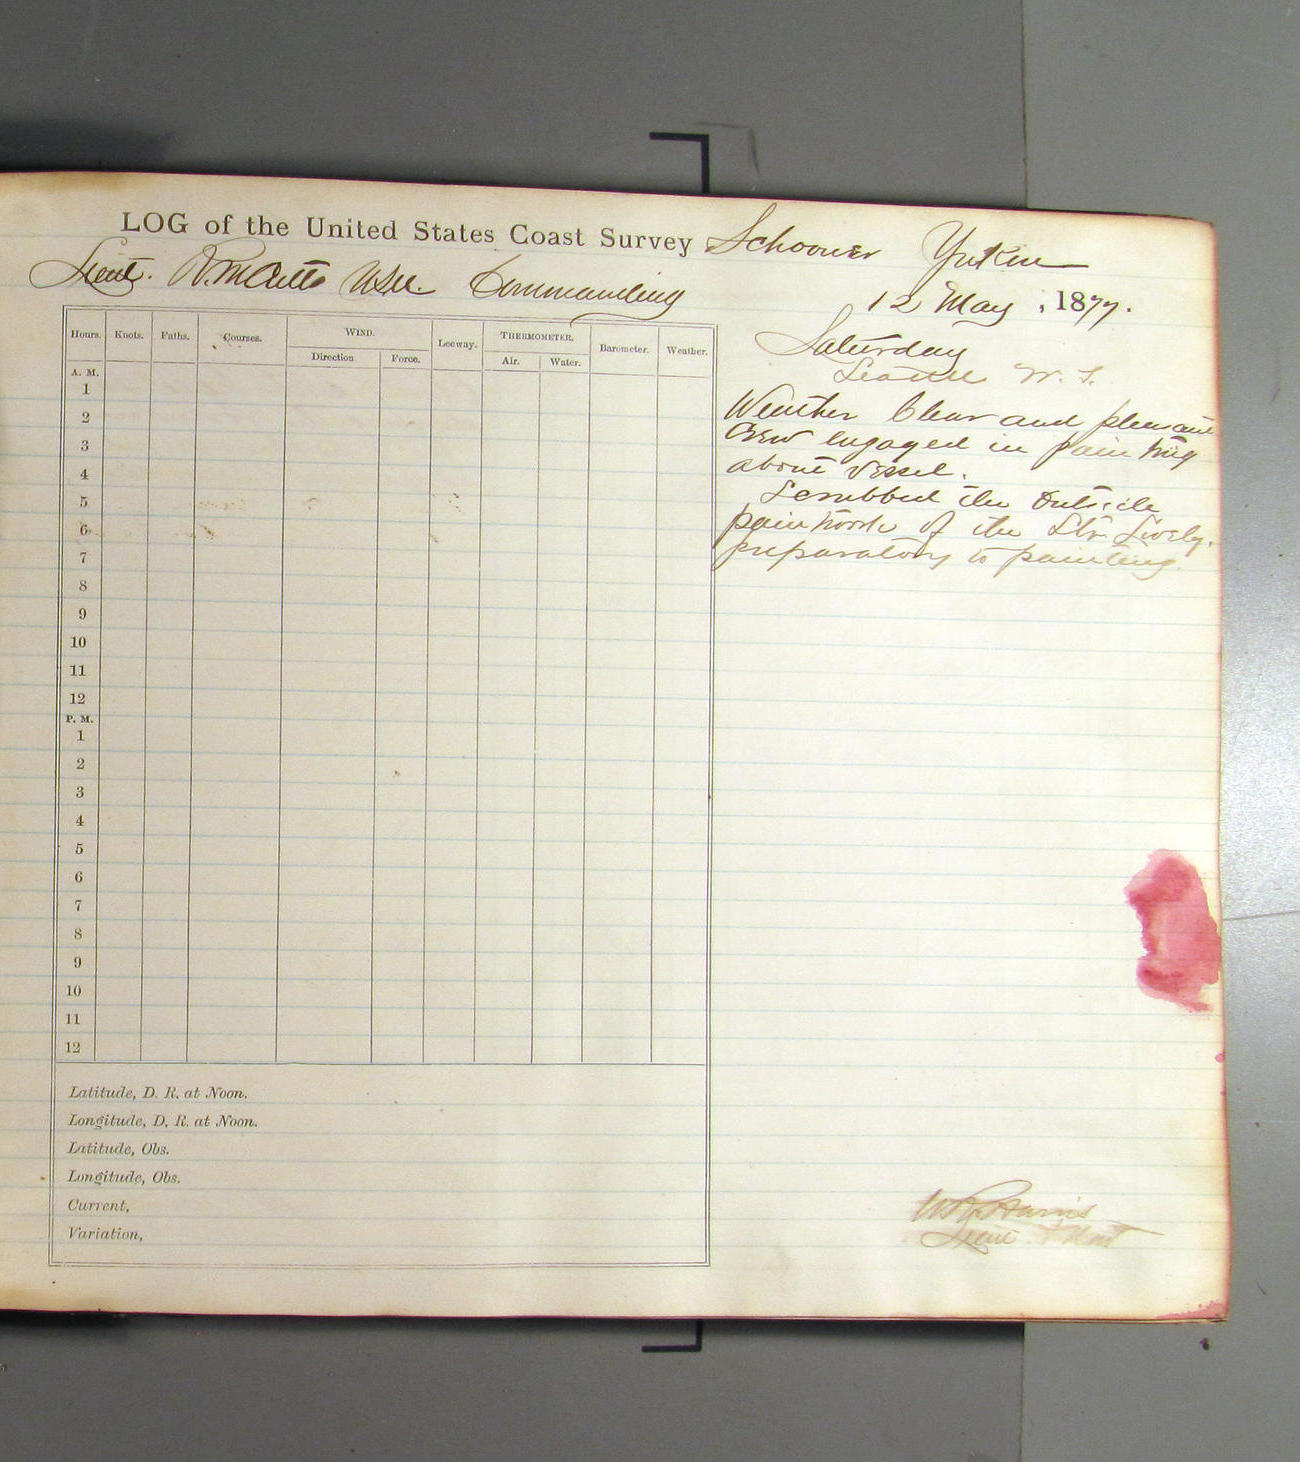 LOG of the United States Coast Survey Schooner Yukon
Lieut. Commanding
12 May, 1877.
Hours. Knots. Faths. Courses. WIND. Leeway. THERMOMETER. Barometer. Weather.
Direction Force. Air. Water.
A. M.
1
2
3
4
5
6
7
8
9
10
11
12
P. M.
1
2
3
4
5
6
7
8
9
10
11
12
Latitude, D. R. at Noon.
Longitude, D. R. at Noon.
Latitude, Obs.
Longitude, Obs.
Current,
Variation,
Saturday
Seattle W. T.
Weather Clear and pleasant
Crew engaged in painting
about vessel.
Scrubbed the outside
paintwork of the Str Lively.
preparatory to painting.
Harris
Lieut